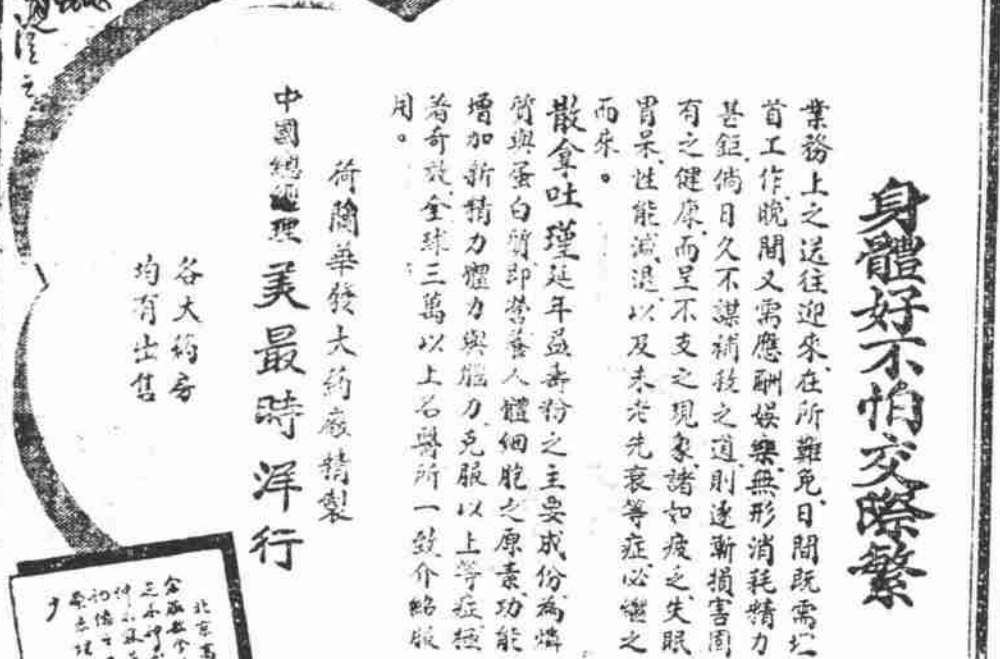 身體好不怕交際繁
業務上之送往迎來、在所難免、日間既需埋
首工作、晚間又需應酬娛樂、無形消耗精力
甚鉅、倘日久不謀補救之道、則逐漸損害固
有之健康、而呈不支之現象、諸如疲乏、失眠
胃呆、性能減退、以及未老先衰等症、必繼之
而來。
散拿吐瑾延年益壽粉之主要成份為燐
質與蛋白質、即營養人體細胞之原素、功能
增加新精力、體力與腦力、克服以上等症、極
著奇效、全球三萬以上名醫所一致介紹服
用。
荷蘭華發大药廠精製
中國總經理 美最時洋行
各大药房
均有出售
北京高